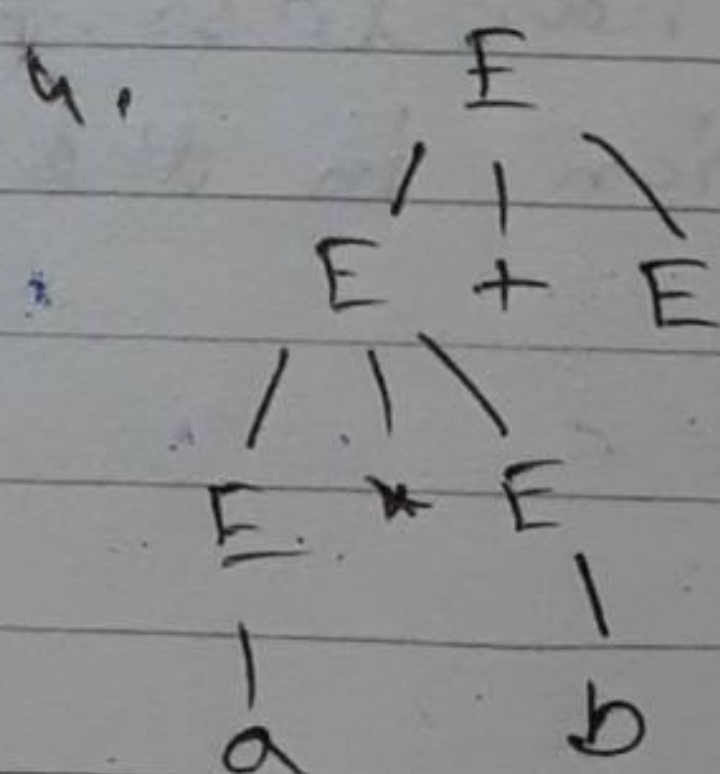 4.
E
E + E
E * E
a b